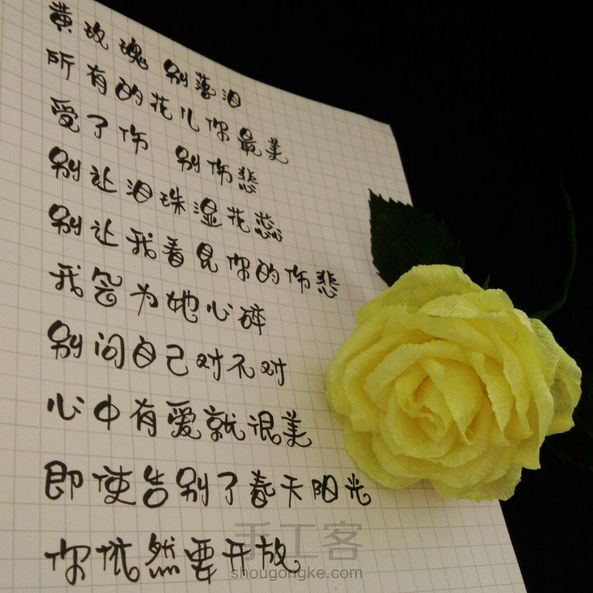 黄玫瑰 别落泪
所有的花儿你最美
受了伤 别伤悲
别让泪珠湿花蕊
别让我看见你的伤悲
我会为她心碎
别问自己对不对
心中有爱就很美
即使告别了春天阳光
你依然要开放
手工客
shougongke.com